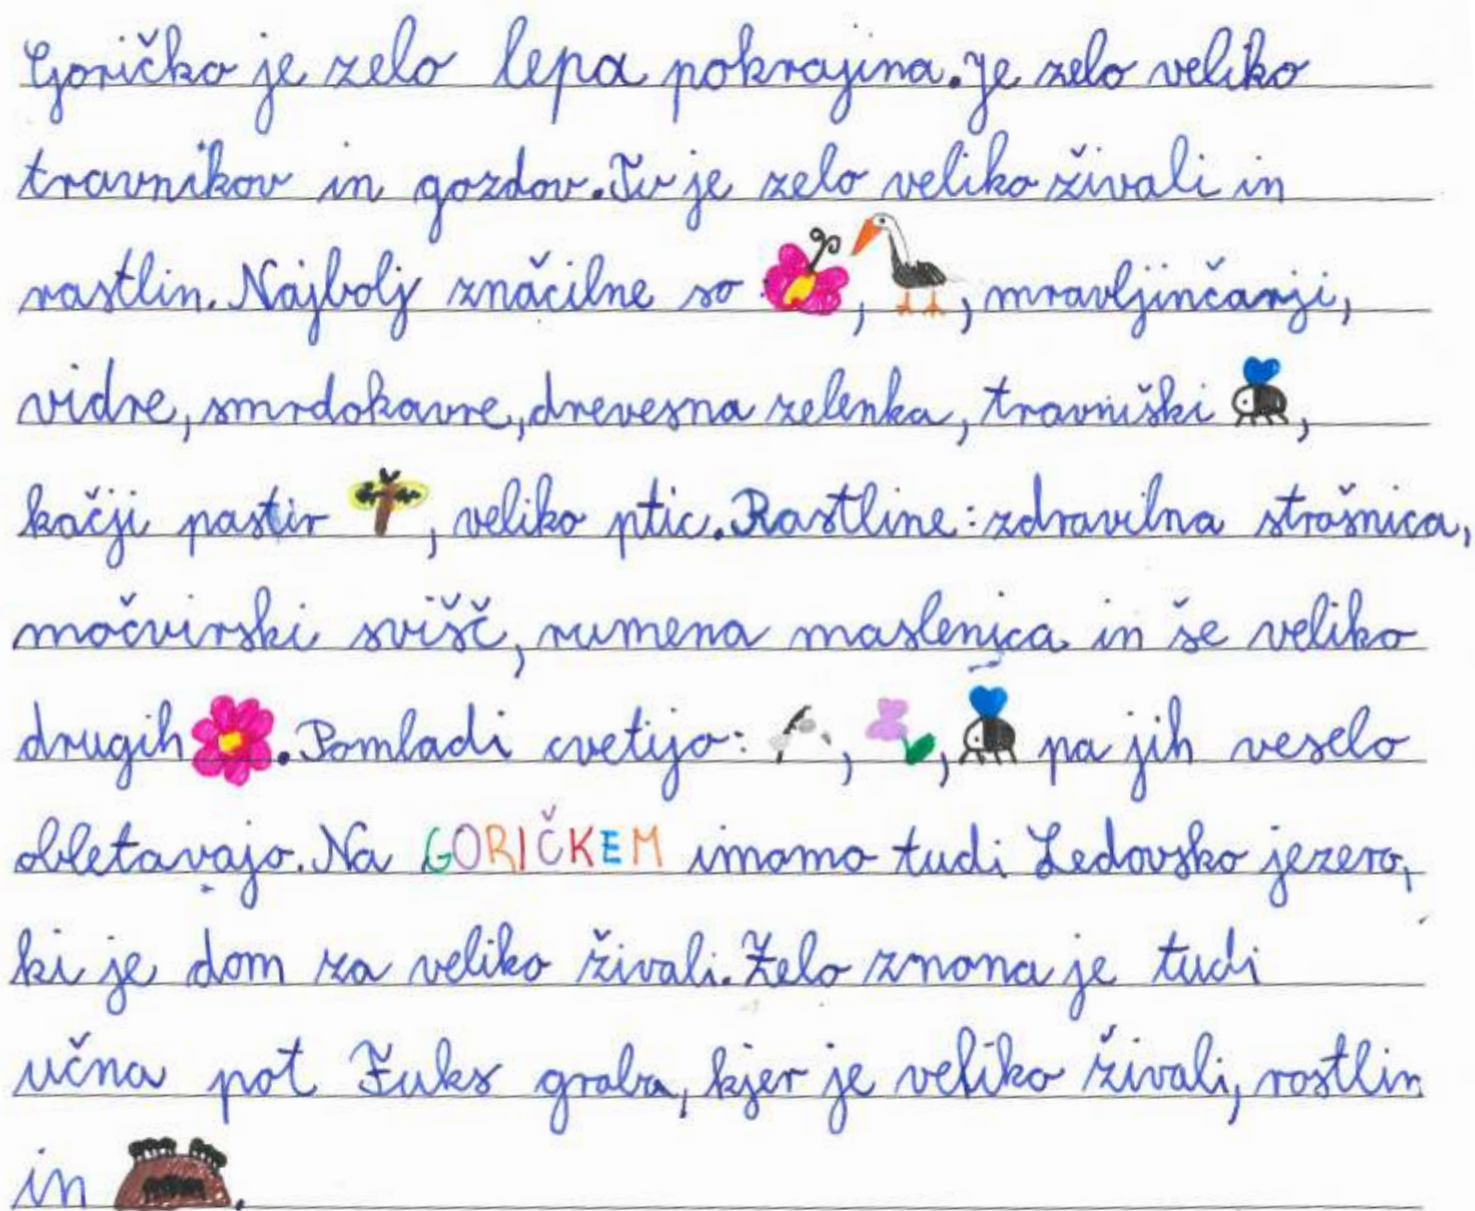 Goričko je zelo lepa pokrajina. Je zelo veliko
travnikov in gozdov. Tu je zelo veliko živali in
rastlin. Najbolj značilne so , , mravljinčarji,
vidre, smrdokavre, drevesna zelenka, travniški ,
kačji pastir , veliko ptic. Rastline: zdravilna strašnica,
močvirski svišč, rumena maslenica in še veliko
drugih . Pomladi cvetijo: , , pa jih veselo
obletavajo. Na GORIČKEM imamo tudi Ledavsko jezero,
ki je dom za veliko živali. Zelo znana je tudi
učna pot Fuks graba, kjer je veliko živali, rastlin
in .